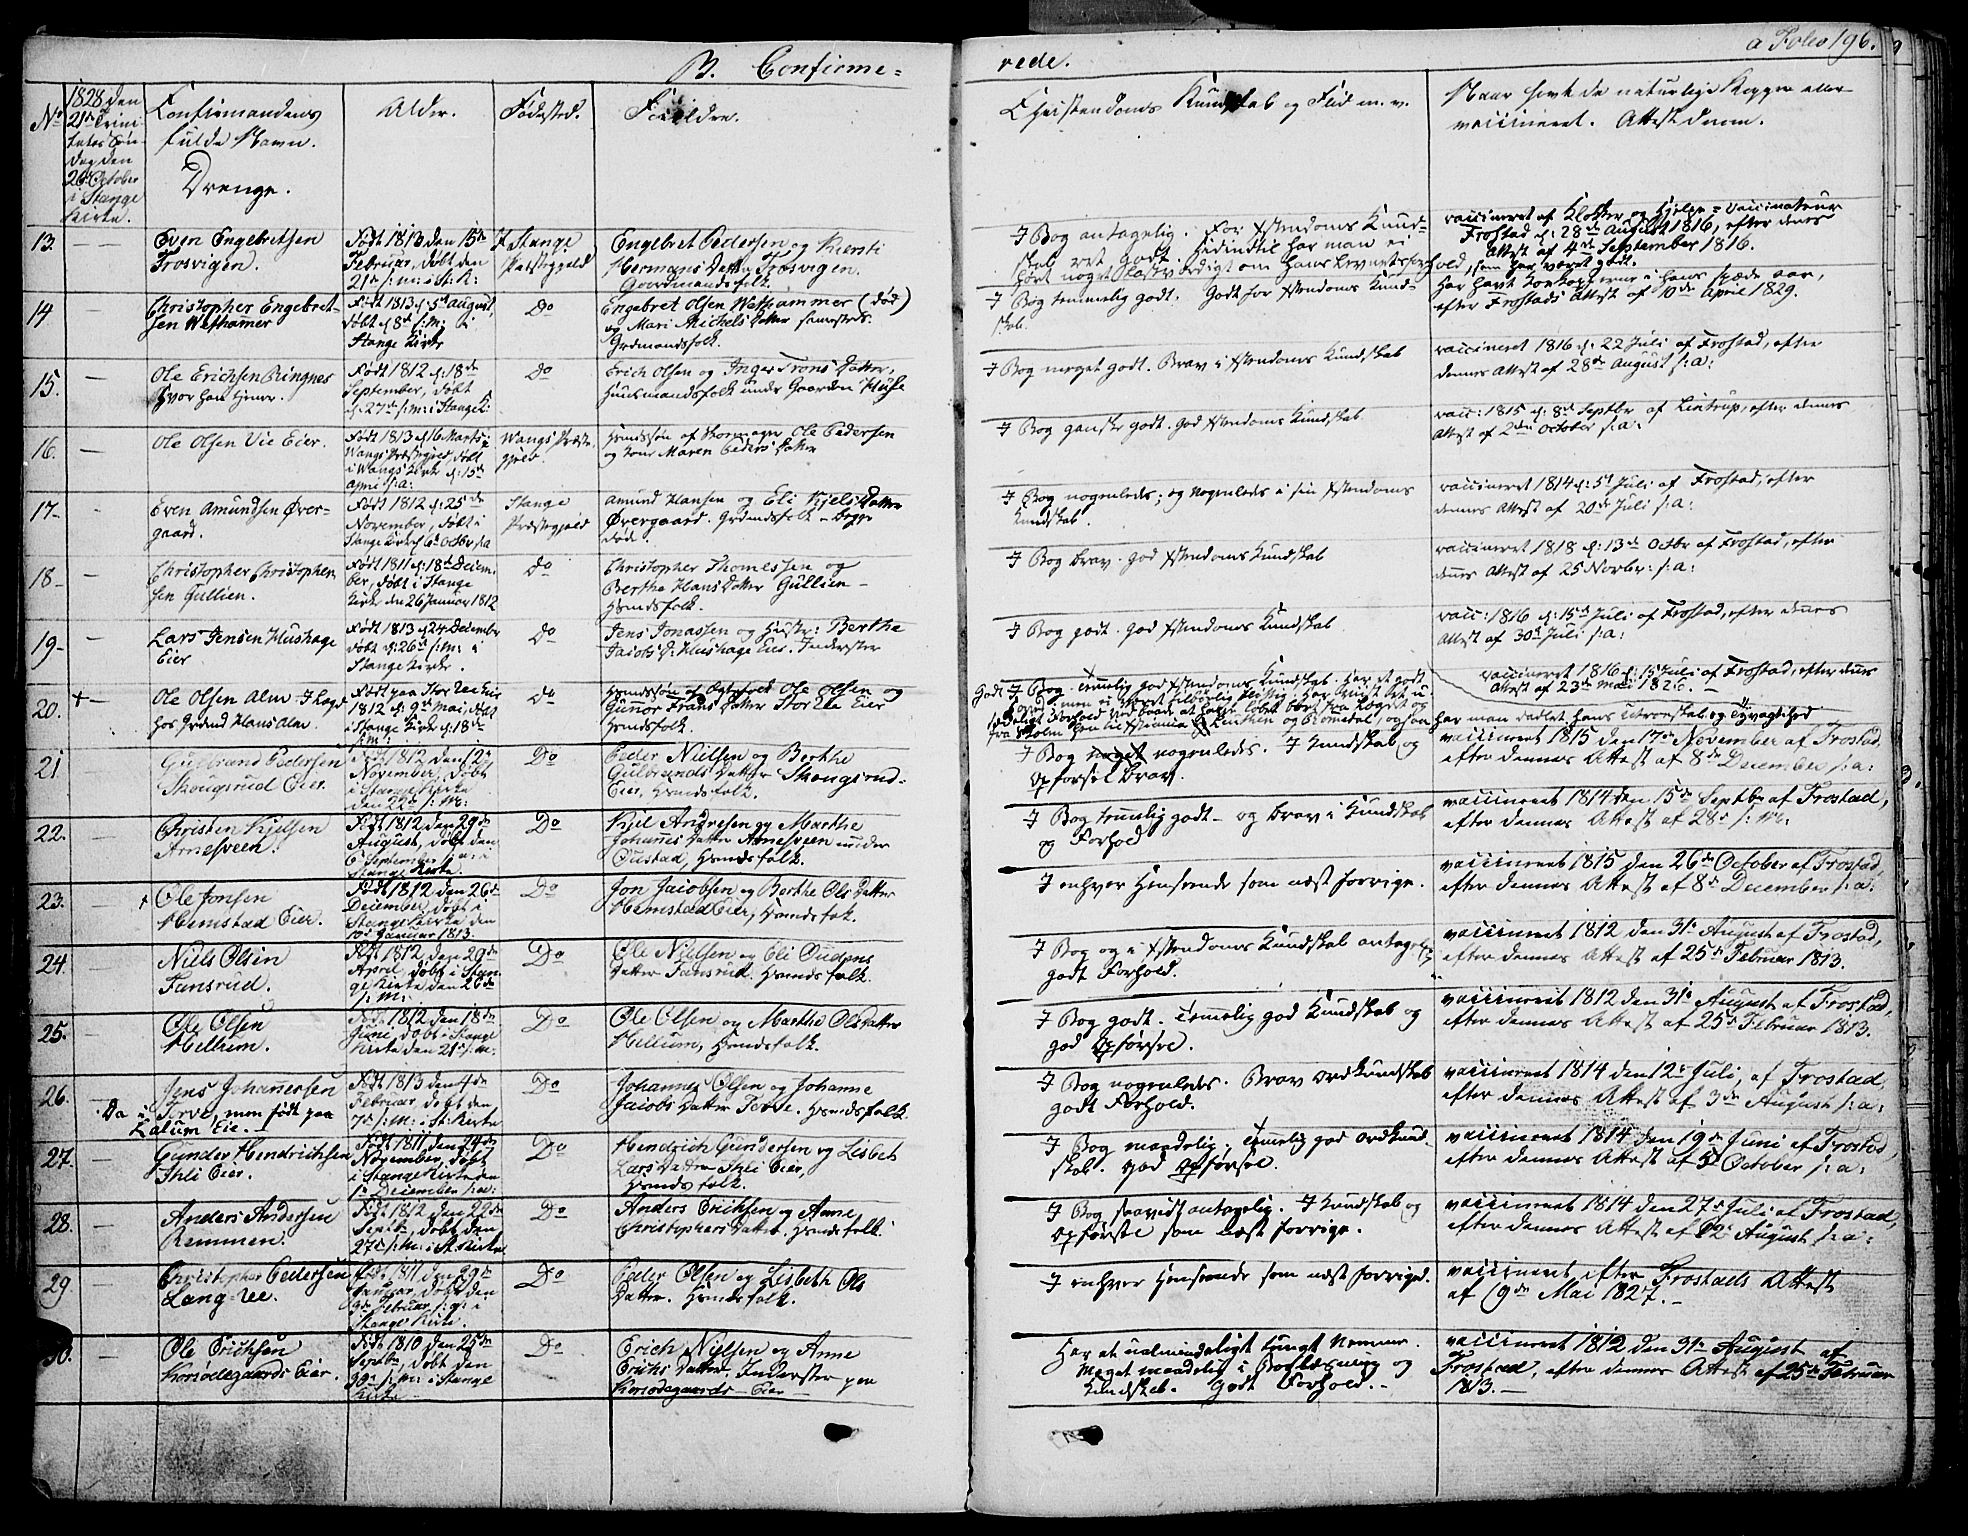 B. Confirme=
rede.
a Folio 196.
No
1828 den
21de Trini
tatis Søn
dag den
26 October
i Stange
Kirke.
Confirmandens
fulde Navn.
Drenge.
Alder.
Fødested.
Forældre.
Christendoms Kundskab og Flid m. v.
Naar havt de naturlige Kopper eller
vaccineret. Attest derom.
13.
Even Engebretsen
Frosvigen.
Født 1813 den 15de
Februar, døbt den
21de s: m: i St: K:
I Stange
Præstegjeld
Engebret Pedersen og Kiersti
Hermans Datter Frosvigen.
Gaardmandsfolk.
I Bog antagelig. For Xstendoms Kund=
skab ret godt. Sidindtil har man ei
hørt noget lastværdigt om hans Levnetsforhold, som har været godt.
vaccineret af Klokker og Hjelpe = Vaccinateur
Frostad d: 28de August 1816, efter dennes
Attest af 4de September 1816.
14
Christopher Engebret-
sen Wethammer
Født 1813 d: 5te August,
døbt d: 8de s: m: i
Stange Kirke
Do
Engebret Olsen Wethammer (død)
og Mari Michels Datter sammesteds.
Grdmandsfolk.
I Bog temmelig godt. Godt for Xstendoms Kund-
skab.
Har havt Kopperne i hans spæde aar,
efter Frostads Attest af 10de April 1829.
15.
Ole Erichsen Ringnes
hvor han tjener.
Født 1812 d: 18de
September, døbt
d: 27de s: m: i Stange K:
Do
Erich Olsen og Inger Trons Datter,
Huusmandsfolk under Gaarden Huse
I Bog meget godt. Brav i Xstendoms Kundskab
vaccineret 1816 d: 22 Juli af Frostad, efter
dennes Attest af 28de August s: a:
16.
Ole Olsen Vie Eier.
Født 1813 d: 16 Marts i
Wangs Præstegjeld, døbt
i Wangs Kirke d: 15de
April s: a:
Wangs Præste
gjeld.
Hmdssøn af Skomager Ole Pedersen
og Kone Maren Peders Datter
I Bog ganske godt. God Xstendoms Kundskab.
vacc: 1815 d: 8de Septbr af Lintrup, efter dennes
Attest af 2den October s: a:
17-
Even Amundsen Over-
gaard.
Født 1812 d: 25de
November, døbt i
Stange Kirke d: 6te Octbr s: a
Stange
Præstegjeld
Amund Hansen og Eli Kjels Datter
Overgaard. Grdmdsfolk - begge
døde.
I Bog nogenledes; og nogenledes i sin Xstendoms
Kundskab.
vaccineret 1814 d: 5te Juli af Frostad, efter
dennes Attest af 20de Juli s: a:
18-
Christopher Christopher
sen Gullien.
Født 1811 d: 18de Decem
ber, døbt i Stange
Kirke den 26 Januar 1812
Do
Christopher Thomessen og
Berthe Hans Datter Gullien -
Hsmdsfolk.
I Bog brav. God Xstendoms Kundskab
vaccineret 1818 d: 13de Octbr af Frostad, efter
dennes Attest af 25 Novbr: s: a:
19-
Lars Jensen Hushage
Eier
Født 1813 d: 24 December
døbt d: 26de s: m: i
Stange Kirke.
Do
Jens Jonassen og Hustr: Berthe
Jacobs D: Hushage Eier. Inderster
I Bog godt. God Xstendoms Kundskab
vacc: 1816 d: 15de Juli af Frostad, efter dennes
Attest af 30te Juli s: a:
20.
+
Ole Olsen Alm I Lage
hos Grdmd Hans Alm.
Født paa Stor Ree Eier
1812 d: 9de Mai, døbt
i Stange Kirke d: 18de
s: m:
Do
Hsmdssøn af Ole Olsen og
Gunnor Frans Datter Stor Ree Eier
Hsmdsfolk.
I Bog. Temmelig god Xstendoms Kundskab. Har et godt
vaccineret 1816 d: 15de Juli af Frostad, efter dennes
Attest af 23de Mai 1826.-
har man dadlet hans
21
Gulbrand Pedersen
Skougsrud Eier.
Født 1812 den 12te
November, døbt
i Stange Kirke
den 22de s: M:
Do
Peder Nielsen og Berthe
Gulbrands Datter Skougsrud-
Eier, Hsmdsfolk.
I Bog meget nogenledes. I Kundskab og
Opførsel brav.
vaccineret 1815 den 17de November af Frostad,
efter dennes Attest af 8de December s: a:
22.
Christen Kjelsen
Arnesveen.
Født 1812 den 29de
August, døbt den
6 September s: a: i
Stange Kirke.
Do
Kjel Andresen og Marthe
Johannes Datter Arnesveen under
Oustad, Hsmdsfolk.
I Bog temmelig godt - og brav i Kundskab
og Forhold
vaccineret 1814 den 15de Septbr af Frostad,
efter dennes Attest af 28de s: M:
23.
Ole Jonsen
Hemstad Eier.
Født 1812 den 26de
December, døbt i
Stange Kirke den
10de Januar 1813.
Do
Jon Jacobsen og Berthe Ols Datter
Hemstad Eier, Hsmdsfolk.
I enhver Henseende som næst forrige.
vaccineret 1815 den 26de October af Frostad,
efter dennes Attest af 8de December s: a:
24.
Niels Olsen
Fansrud.
Født 1812 den 20de
April, døbt i Stan
ge Kirke den 26de
s: M:
Do
Ole Nielsen og Eli Oudens
Datter Fansrud. Hsmdsfolk.
I Bog og i Xstendoms Kundskab antagelig
godt Forhold.
vaccineret 1812 den 31te August af Frostad,
efter dennes Attest af 25de Februar 1813.
25.
Ole Olsen
Hellum.
Født 1812 den 18de
Juni, døbt i Stange
Kirke den 21de s: m:
Do
Ole Olsen og Marthe Ols Datter
Hellum, Hsmdsfolk.
I Bog godt. Temmelig god Kundskab og
god Opførsel.
vaccineret 1812 den 31te August af Frostad,
efter dennes Attest af 25de Februar 1813.
26.
Jens Johannessen
Torve, men født paa
Lalum Eie.
Født 1813 den 4de
Februar, døbt den
7de s: M: i St: Kirke
Do
Johannes Olsen og Johanne
Jacobs Datter Torve. Hsmdsfolk
I Bog nogenledes. Brav Ordkundskab
godt Forhold.
vaccineret 1814 den 12te Juli, af Frostad,
efter dennes Attest af 3de August s: a:
27.
Gunder Hendrichsen
Ihli Eier.
Født 1811 den 24de
November, døbt
i Stange Kirke den
1ste December s: a:
Do
Hendrich Gundersen og Lisbet
Lars Datter Ihli Eier,
Hsmdsfolk.
I Bog maadelig. Temmelig god Ordkund-
skab. God Opførsel.
vaccineret 1814 den 19de Juni af Frostad,
efter dennes Attest af 5te October s: a:
28.
Anders Andersen
Remmen.
Født 1812 den 22de
Septbr, døbt den
27de s: M: i St: Kirke
Do
Anders Erichsen og Anne
Christophers Datter. Hsmdsfolk.
I Bog saavidt antagelig. I Kundskab og
Opførsel som næst forrige.
vaccineret 1814 den 27de Juli af Frostad,
efter dennes Attest af 12te August s: a:
29.
Christopher Pedersen
Lang-Ree.
Født 1811 den 29de
Januar, døbt den
9de Februar s: a: i
Stange Kirke.
Do
Peder Olsen og Lisbeth Ols
Datter. Hsmdsfolk.
I enhver Henseende som næst forriged.
vaccineret efter Frostads Attest
af 19de Mai 1827.-
30.
Ole Erichsen
Korsødegaards Eier.
Født 1810 den 25de
Septbr, døbt den
30te s: M: i Stange
Kirke
Do
Erich Nielsen og Anne
Erichs Datter. Inderster paa
Korsødegaards-Eier
Har et ualmindeligt tungt Nemme.
Meget maadelig i Boglæsning og
Kundskab. Godt Forhold.-
vaccineret 1812 den 31te August af
Frostad, efter dennes Attest af 25de Februar
1813.-